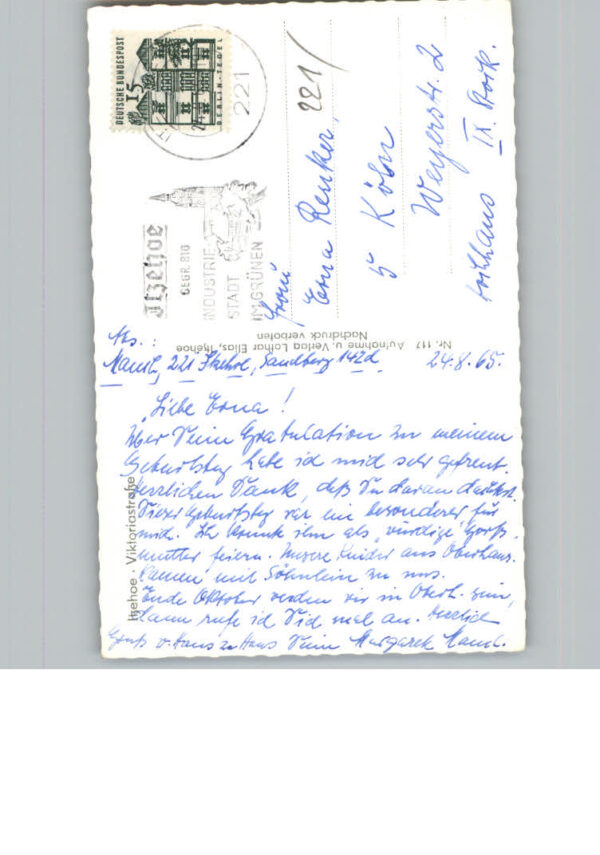 DEUTSCHE BUNDESPOST
15
BERLIN-TEGEL
221
221/
Itzehoe
GEGR. 810
INDUSTRIE-
STADT
IM GRÜNEN
Frau
Erna Renker
5 Köln
Weyerstr. 2
Hochhaus IX. Stock.
Nr. 117 Aufnahme u. Verlag Lothar Elias, Itzehoe
Nachdruck verboten
Itzehoe · Viktoriastraße
Abs.:
221 Itzehoe, Sandberg 142d 24.8.65.
Liebe Erna!
Über Deine Gratulation zu meinem
Geburtstag habe ich mich sehr gefreut.
Herzlichen Dank, daß Du daran dachtest.
Dieser Geburtstag war ein besonderer für
mich. Ich konnte ihn als "würdige" Groß-
mutter feiern. Unsere Kinder aus Oberhaus.
kamen mit Söhnlein zu uns.
Ende Oktober werden wir in Oberh. sein,
dann rufe ich Dich mal an. Herzlich
Gruß v. Haus zu Haus Deine Margarete